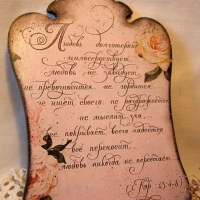 Любовь долготерпит
милосердствует
любовь не завидует
не превозносится не гордится
не ищет своего не раздражается
не мыслит зла
всё покрывает всего надеется
всё переносит
любовь никогда не перестаёт
(1 Кор 13.4-8)